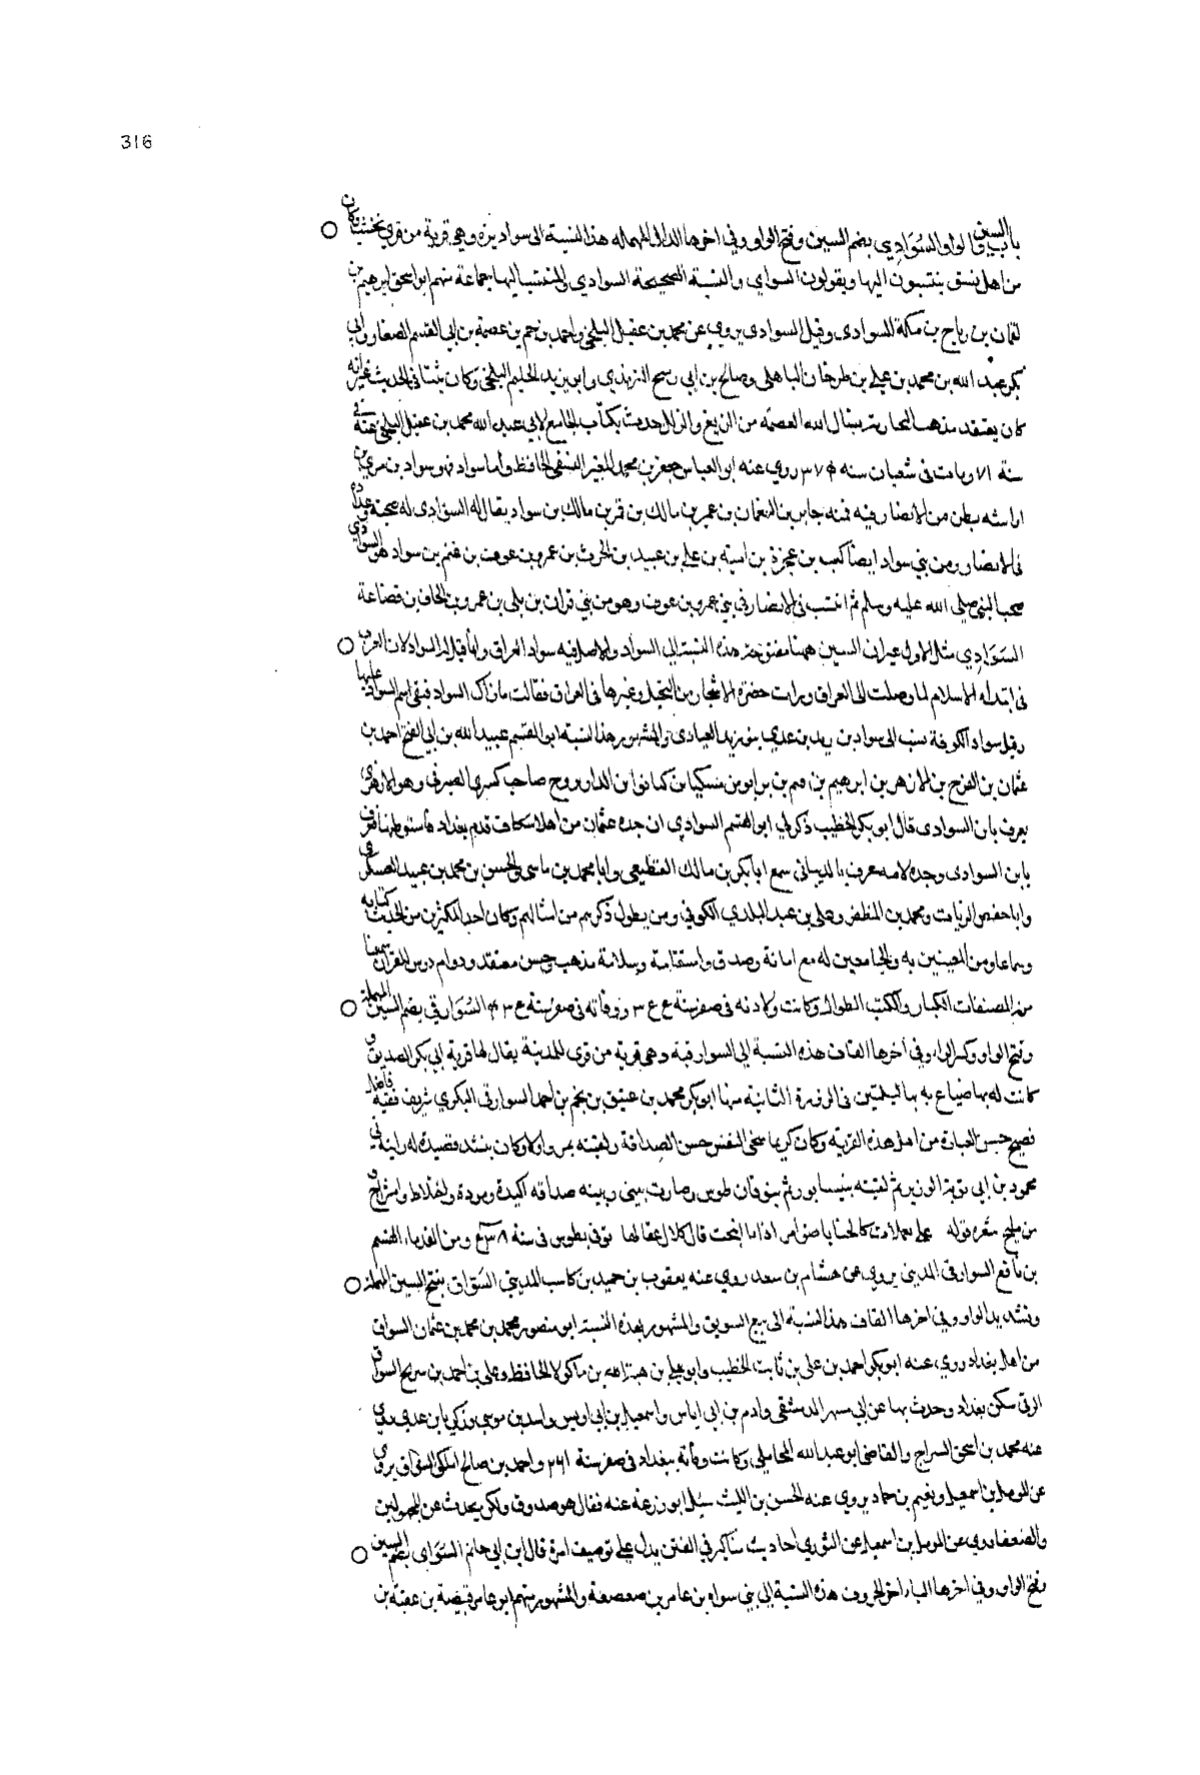 316
باب السين والواو السُوَادِي بضم السين وفتح الواو وفي اخرها الدال المهملة هذه النسبة الى سواديزه وهي قرية من قرى نخشب وكان
من اهل نسف ينتسبون اليها ويقولون السوادي والنسبة الصحيحة السوادي والمنتسب اليها جماعة منهم ابو اسحق ابرهيم بن
لقمان بن رياح بن مكة السوادى وقيل السوادى يروي عن محمد بن عقيل البلخي واحمد بن حم بن عصمة بن ابي القسم الصفار وابي
بكر عبد الله بن محمد بن علي بن طرخان الباهلى وصالح بن ابي رميح الترمذي وابو يزيد الحليم البلخى وكان ثبتا فى الحديث غير انه
كان يعتقد مذهب النجارية نسال الله العصمة من الزيغ والزلل حدث بكتاب الجامع لابي عبد الله محمد بن عقيل البلخي عنه فى
سنة ومات فى شعبان سنه ٣٧٤ روي عنه ابو العباس جعفر بن محمد المعتز النسفي الحافظ واما سواد فهو سواد بن مري بن
اراشه بطن من الانصار وفيه فمنه جابر بن النعمان بن عمير بن مالك بن قمر بن مالك بن سواد يقال له السوادى له صحبة وعداده
فى الانصار ومن بني سواد ايضا كعب بن عجرة بن امية بن على بن عبيد بن الحرث بن عمرو بن عوف بن غنم بن سواد هو السوادي
صحب النبي صلى الله عليه وسلم ثم انتسب فى الانصار في بني عمرو بن عوف وهو من بني فران بن بلى بن عمرو بن الحاف بن قضاعة
السَوَادِي مثل الاول غير ان السين ههنا مفتوحة هذه النسبة الى السواد والاصل فيه سواد العراق وانما قيل له السواد لان العرب
فى ابتداء الاسلام لما وصلت الى العراق ورات خضرة الاشجار من النخل وغيرها فى العراق فقالت ما ذاك السواد فبقي اسم السواد عليها
وقيل سواد الكوفة نسب الى سواد بن زيد بن عدي بن زيد العبادى والمشهور بهذه النسبة ابو القسم عبيد الله بن ابي الفتح احمد بن
عثمان بن الفرج بن الازهر بن ابرهيم بن قيم بن برانو بن مسكيا بن كيانوا بن الداروروج صاحب كسرى الصيرفي وهو الازهري
يعرف بابن السوادى قال ابو بكر الخطيب ذكر لي ابو القسم السوادي ان جده عثمان من اهل اسكاف قدم بغداد فاستوطنها فعرف
بابن السوادى وجده لامه يعرف بالدبثاني سمع ابا بكر بن مالك القطيعى وابا محمد بن ماسى والحسن بن محمد بن عبيد العسكري
وابا حفص الزيات ومحمد بن المظفر وعلي بن عبد الرحمن البكائي الكوفي ومن يطول ذكرهم من امثالهم وكان احد المكثرين من الحديث كتابه
وسماعا ومن المعنيين به والجامعين له مع امانة وصدق واستقامة وسلامة مذهب وحسن معتقد ودوام درس للقران سمعنا
منه المصنفات الكبار والكتب الطوال وكانت ولادته فى صفر سنة ووفاته فى صفر سنة السُوَارِقي بضم السين المهملة
وفتح الواو وكسر الراء وفي اخرها القاف هذه النسبة الي السوارقية وهي قرية من قرى المدينة يقال لها قرية ابي بكر الصديق
كانت له بها ضياع منها ابو بكر محمد بن عتيق بن نجم بن احمد السوارقى البكري شريف فقيه فاضل
فصيح حسن العبارة من اهل هذه القرية وكان كريما سخى النفس حسن الصداقة لقيته بمرو اولا وكان ينشد قصيدة له رايته في
محمود بن ابي توبة الوزير ثم لقيته بنيسابور ثم بنوقان طوس وصارت بيني وبينه صداقة اكيدة ومودة واختلاط وامتزاج
من مليح شعره قوله على يعملات كالحنايا ضوامر اذا ما انتحت قال كلال عقالها توفي بطوس فى سنة ومن القدماء القسم
بن نافع السوارقي المديني يروي عن هشام بن سعد روي عنه يعقوب بن حميد بن كاسب المديني السَوّاق بفتح السين المهملة
وتشديد الواو وفي اخرها القاف هذه النسبة الى بيع السويق والمشهور بهذه النسبة ابو منصور محمد بن محمد بن عثمان السواق
من اهل بغداد روي عنه ابو بكر احمد بن على بن ثابت الخطيب وابو علي بن هبة الله بن ماكولا الحافظ وعلى بن احمد بن سريج السواق
الرقي سكن بغداد وحدث بها عن ابي مسهر الدمشقى وادم بن ابي اياس واسمعيل بن ابي اويس واسد بن موسى وزكريا بن عدي روي
عنه محمد بن اسحق السراج والقاضى ابو عبد الله المحاملى وكانت وفاته ببغداد فى صفر سنة ٢٦١ واحمد بن صالح المكى السواق يروي
عن المومل بن اسمعيل ونعيم بن حماد يروي عنه الحسن بن الليث سئل ابو زرعة عنه فقال هو صدوق ولكن يحدث عن المجهولين
والضعفا روي عن المومل بن اسمعيل عن الثوري احاديث مناكير في الفتن يدل على توهيف امره قال ابن ابي حاتم السُوَاى بضم السين
وفتح الواو وفي اخرها الياء اخر الحروف هذه النسبة الي بني سواه بن عامر بن صعصعة والمشهور منهم ابو عامر قبيصة بن عقبة بن